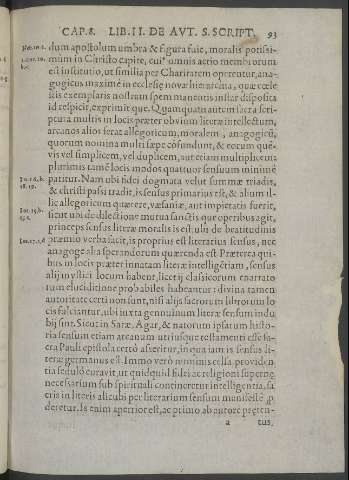 CAP. 8. LIB. II. DE AVT. S. SCRIPT. 93
dum apostolum umbra & figura fuit, moralis potissi-
mum in Christo capite, cui⁹ omnis actio membrorum
est institutio, ut similia per Charitatem operentur, ana-
gogicus maximè in ecclesię novæ hierarchia, quæ cœle-
stis exemplaris nostram spem manentis instar disposita
id respicit, exprimitque. Quamquam autem sacra scri-
ptura multis in locis præter obvium literæ intellectum,
arcanos alios ferat allegoricum, moralem, anagogicũ,
quorum nomina multi sæpe cõfundunt, & eorum quę-
vis vel simplicem, vel duplicem, aut etiam multiplicem:
plurimis tamē locis modos quattuor sensuum minimè
patitur. Nam ubi fidei dogmata velut summæ triadis,
& christi passi tradit, is sensus primarius est, & alium il-
lic allegoricum quærere, væsaniæ, aut impietatis fuerit,
sicut ubi de dilectione mutua sanctisque operibus agit,
princeps sensus literæ moralis is est: ubi de beatitudinis
præmio verba facit, is proprius est literarius sensus, nec
anagoge alia sperandorum quærenda est. Præterea qui-
bus in locis præter innatam literæ intelligētiam, sensus
alij mystici locum habent, licet ij classicorum enarrato-
rum elucidatione probabiles habeantur: divina tamen
autoritate certi non sunt, nisi alijs sacrorum librorum lo-
cis fulciantur, ubi iuxta genuinum literæ sensum indu-
bij sint. Sicut in Saræ, Agar, & natorum ipsarum histo-
ria sensum etiam arcanum utriusque testamenti esse sa-
cra Pauli epistola certò asseritur, in qua iam is sensus li-
teræ germanus est. Immo verò numinis cælsa providen-
tia sedulò curavit, ut quidquid fidei ac religioni supernę
necessarium sub spirituali contineretur intelligentia, sa-
cris in literis alicubi per literarium sensum manifestè p̱-
deretur. Is enim apertior est, ac primo ab autore preten-
a tus,